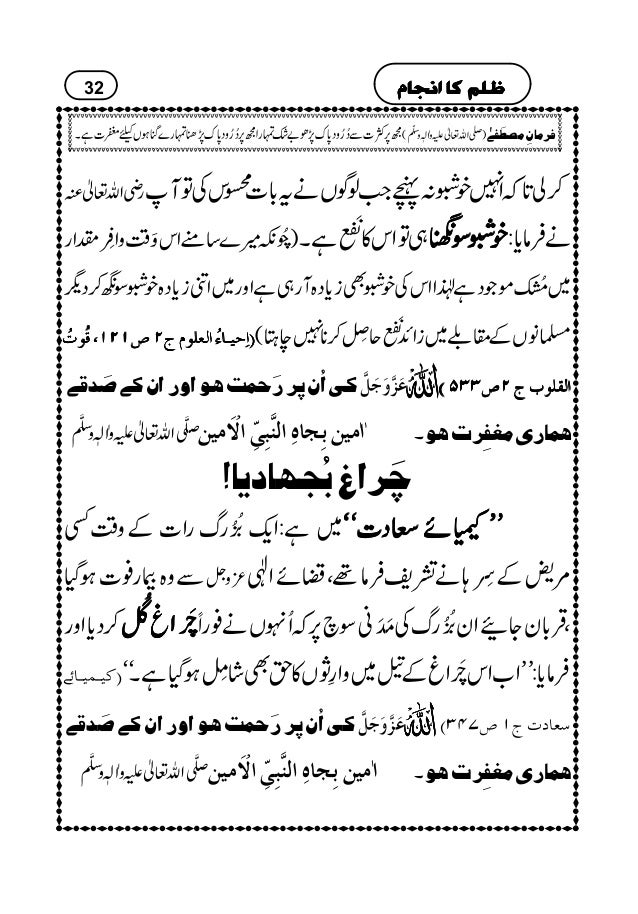 ظلم کا انجام
32
فرمانِ مصطَفٰے (صلی اللہ تعالیٰ علیہ واٰلہٖ وسلّم) مجھ پر کثرت سے دُرُود پاک پڑھو بے شک تمہارا مجھ پر دُرُود پاک پڑھنا تمہارے گناہوں کیلئے مغفرت ہے۔
کر لی تاکہ اُنہیں خوشبو نہ پہنچے جب لوگوں نے یہ بات محسوس کی تو آپ رضی اللہ تعالیٰ عنہ
نے فرمایا: خوشبو سونگھنا ہی تو اس کا نَفْع ہے۔ (چُونکہ میرے سامنے اس وَقت وافِر مقدار
میں مُشک موجود ہے لہٰذا اس کی خوشبو بھی زیادہ آ رہی ہے اور میں اتنی زیادہ خوشبو سونگھ کر دیگر
مسلمانوں کے مقابلے میں زائد نَفْع حاصِل کرنا نہیں چاہتا) (اِحیاءُ العلوم ج۲ ص۱۲۱، قُوتُ
القلوب ج ۲ ص۵۳۳) اللہ عَزَّوَجَلَّ کی اُن پر رَحمت ہو اور ان کے صَدقے
ہماری مغفِرت ہو۔ اٰمین بِجاہِ النَّبِیِّ الْاَمین صلَّی اللہ تعالیٰ علیہ واٰلہٖ وسلَّم
چَراغ بُجھا دیا!
’’کیمیائے سعادت‘‘ میں ہے: ایک بُزُرگ رات کے وقت کسی
مریض کے سِرہانے تشریف فرما تھے، قضائے الٰہی عزوجل سے وہ بیمار فوت ہوگیا
،قربان جائیے ان بُزُرگ کی مَدَنی سوچ پر کہ اُنہوں نے فوراً چَراغ گُل کر دیا اور
فرمایا: ’’اب اس چَراغ کے تیل میں وارِثوں کا حق بھی شامِل ہوگیا ہے۔‘‘ (کیمیائے
سعادت ج۱ ص۳۴۷) اللہ عَزَّوَجَلَّ کی اُن پر رَحمت ہو اور ان کے صَدقے
ہماری مغفِرت ہو۔ اٰمین بِجاہِ النَّبِیِّ الْاَمین صلَّی اللہ تعالیٰ علیہ واٰلہٖ وسلَّم